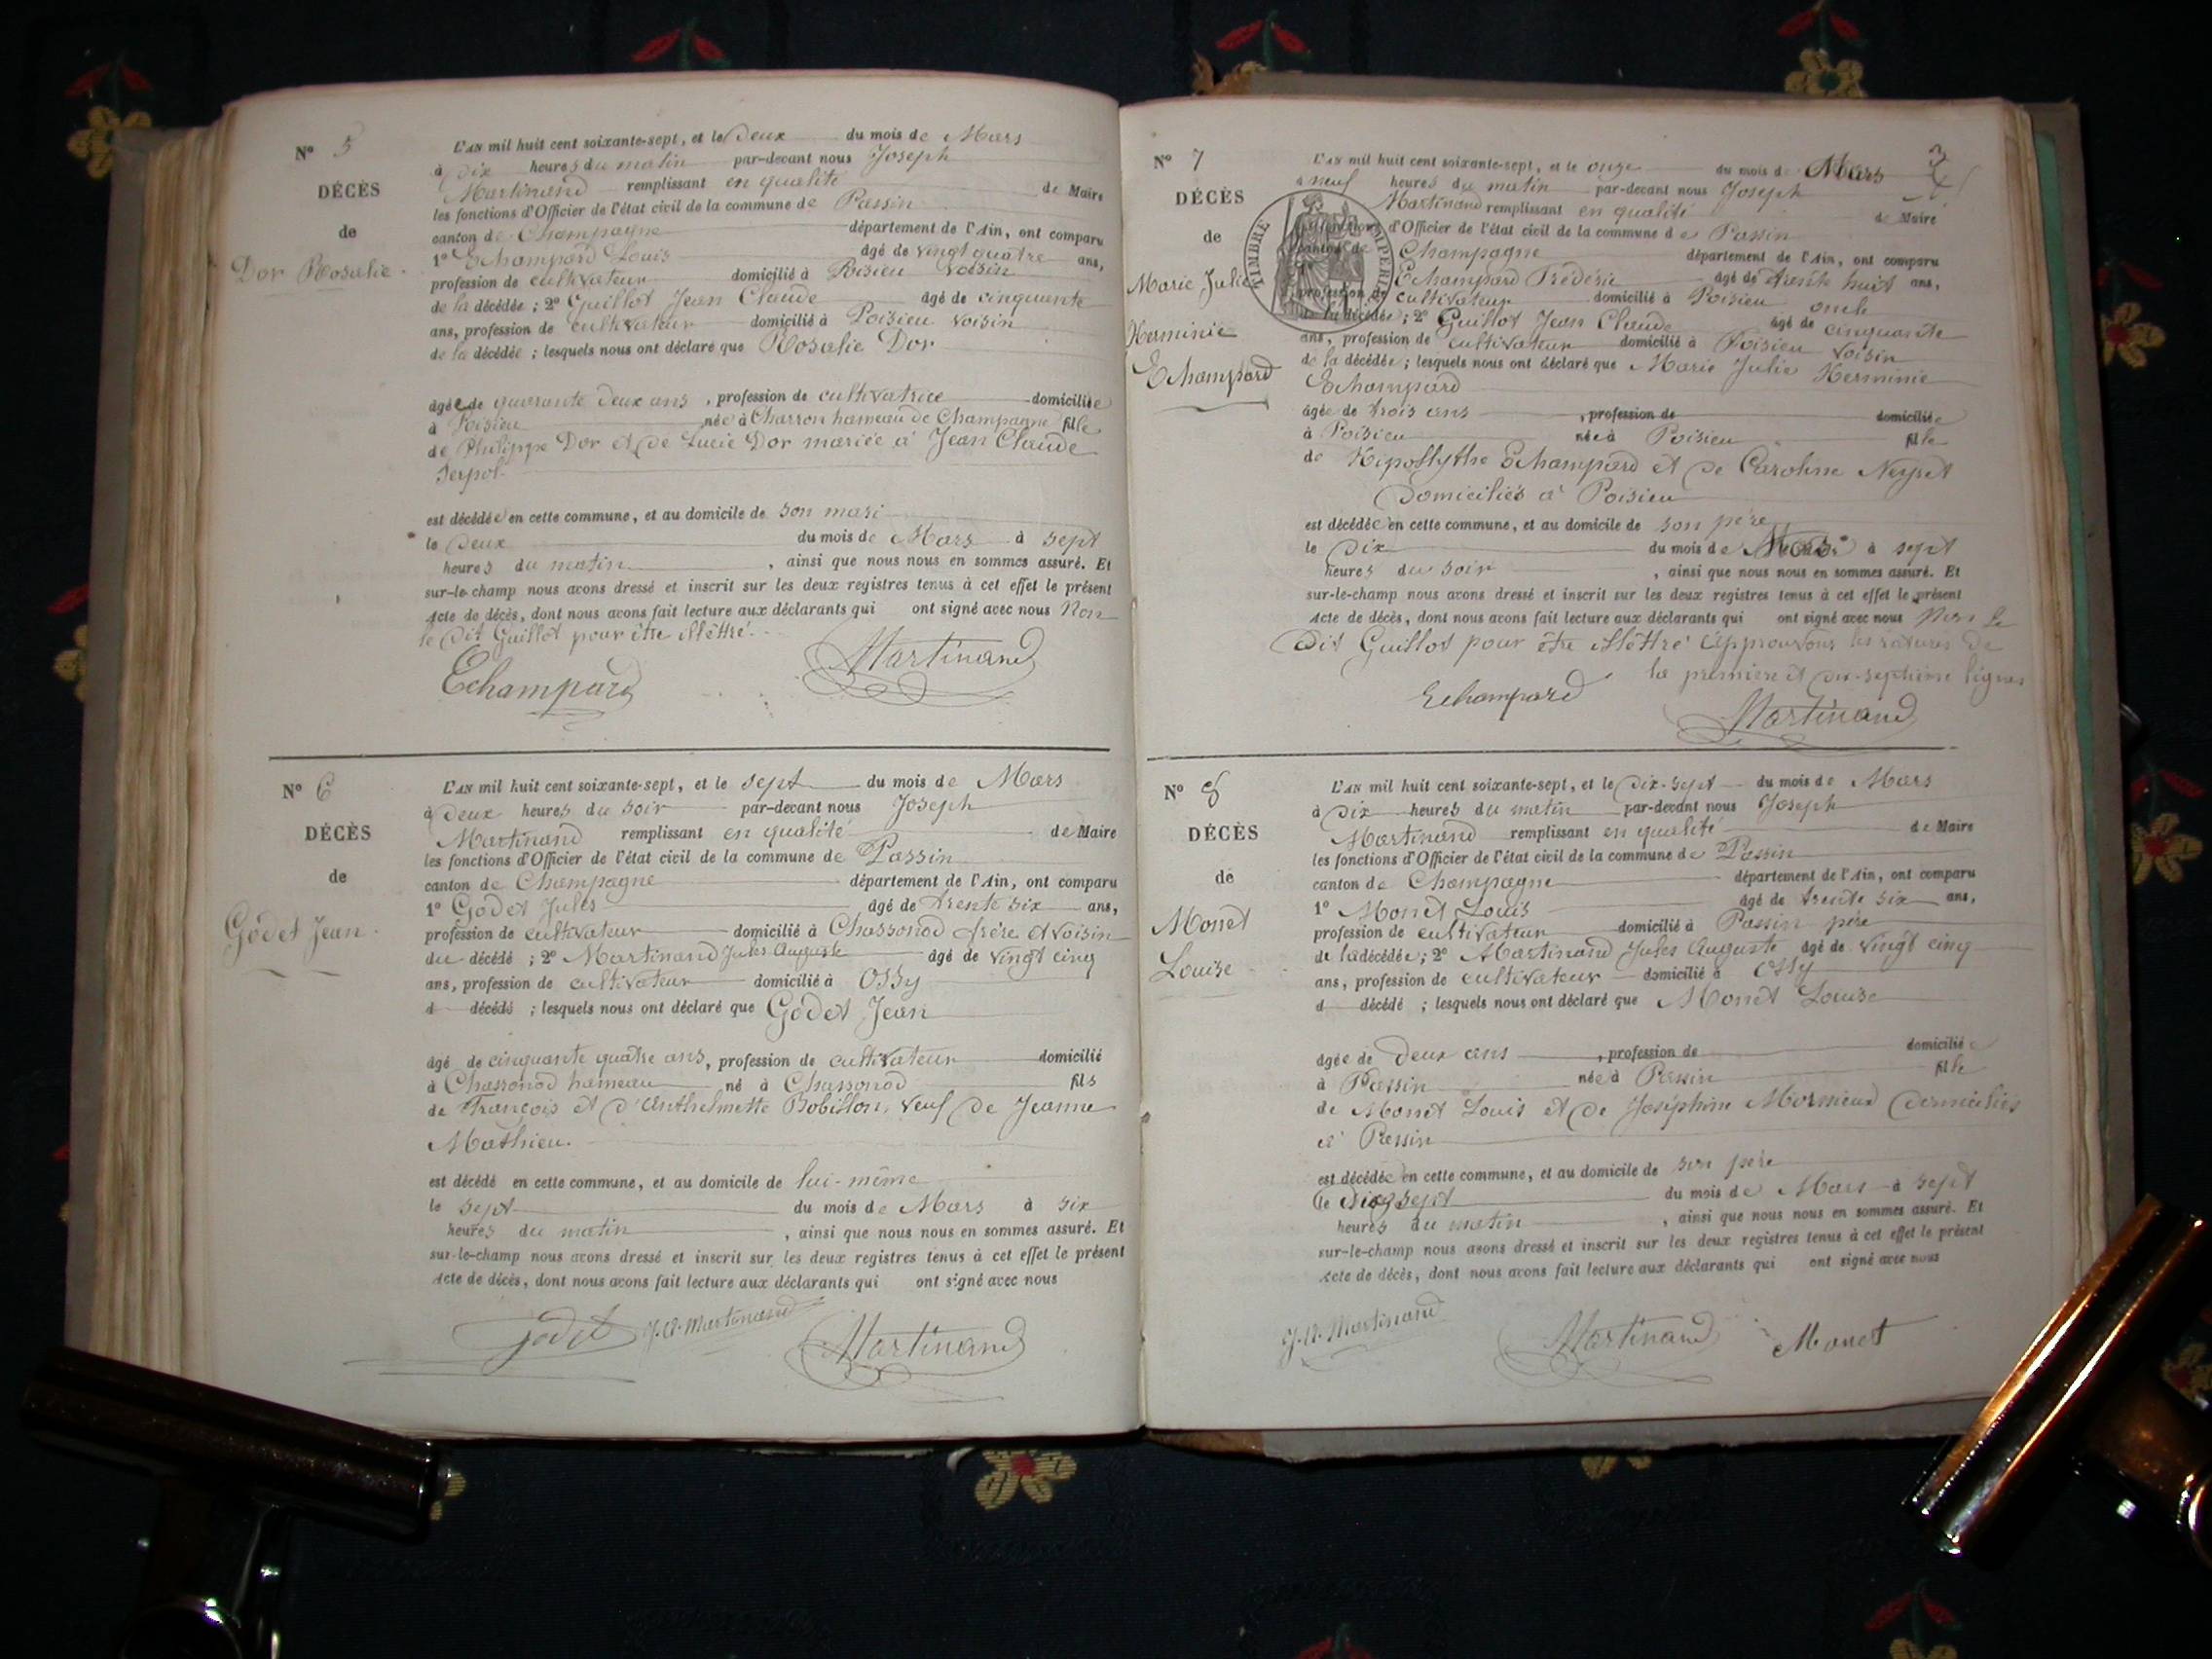 N° 5
DÉCÈS
de
Dor Rosalie
L'AN mil huit cent soixante-sept, et le Deux du mois de Mars
à Dix heures du matin par-devant nous Joseph
Martinand remplissant en qualité de Maire
les fonctions d'Officier de l'état civil de la commune de Passin
canton de Champagne département de l'Ain, ont comparu
1° Echampard Louis âgé de vingt quatre ans,
profession de cultivateur domicilié à Poisieu voisin
de la décédée ; 2° Guillot Jean Claude âgé de cinquante
ans, profession de cultivateur domicilié à Poisieu voisin
de la décédée ; lesquels nous ont déclaré que Rosalie Dor
âgée de quarante deux ans, profession de cultivatrice domiciliée
à Poisieu née à Charron hameau de Champagne fille
de Philippe Dor et de Lucie Dor mariée à Jean Claude
Serpol
est décédée en cette commune, et au domicile de son mari
le Deux du mois de Mars à sept
heures du matin, ainsi que nous nous en sommes assuré. Et
sur-le-champ nous avons dressé et inscrit sur les deux registres tenus à cet effet le présent
Acte de décès, dont nous avons fait lecture aux déclarants qui ont signé avec nous Non
le dit Guillot pour être illéttré.
Echampard Martinand
N° 6
DÉCÈS
de
Godet Jean
L'AN mil huit cent soixante-sept, et le sept du mois de Mars
à deux heures du soir par-devant nous Joseph
Martinand remplissant en qualité de Maire
les fonctions d'Officier de l'état civil de la commune de Passin
canton de Champagne département de l'Ain, ont comparu
1° Godet Jules âgé de trente six ans,
profession de cultivateur domicilié à Chassonod frère et voisin
du décédé ; 2° Martinand Jules Auguste âgé de vingt cinq
ans, profession de cultivateur domicilié à Ossy
d décédé ; lesquels nous ont déclaré que Godet Jean
âgé de cinquante quatre ans, profession de cultivateur domicilié
à Chassonod hameau né à Chassonod fils
de François et d'Anthelmette Bobillon, veuf de Jeanne
Mathieu.
est décédé en cette commune, et au domicile de lui-même
le sept du mois de Mars à six
heures du matin, ainsi que nous nous en sommes assuré. Et
sur-le-champ nous avons dressé et inscrit sur les deux registres tenus à cet effet le présent
Acte de décès, dont nous avons fait lecture aux déclarants qui ont signé avec nous
Godet J.A. Martinand Martinand
3
N° 7
DÉCÈS
de
Marie Julie
Herminie
Echampard
TIMBRE IMPERIAL
L'AN mil huit cent soixante-sept, et le onze du mois de Mars
à neuf heures du matin par-devant nous Joseph
Martinand remplissant en qualité de Maire
d'Officier de l'état civil de la commune de Passin
canton de Champagne département de l'Ain, ont comparu
Echampard Fréderic âgé de trente huit ans,
profession de cultivateur domicilié à Poisieu oncle
de la décédée ; 2° Guillot Jean Claude âgé de cinquante
ans, profession de cultivateur domicilié à Poisieu voisin
de la décédée ; lesquels nous ont déclaré que Marie Julie Herminie
Echampard
âgée de trois ans, profession de domiciliée
à Poisieu née à Poisieu fille
de Hipollythe Echampard et de Caroline Neyret
domiciliés à Poisieu
est décédée en cette commune, et au domicile de son père
le Dix du mois de Mars à sept
heures du soir, ainsi que nous nous en sommes assuré. Et
sur-le-champ nous avons dressé et inscrit sur les deux registres tenus à cet effet le présent
Acte de décès, dont nous avons fait lecture aux déclarants qui ont signé avec nous Non le
dit Guillot pour être illéttré approuvons les ratures de
la première et dix-septième lignes
Echampard Martinand
N° 8
DÉCÈS
de
Monet
Louise
L'AN mil huit cent soixante-sept, et le Dix-sept du mois de Mars
à Dix heures du matin par-devant nous Joseph
Martinand remplissant en qualité de Maire
les fonctions d'Officier de l'état civil de la commune de Passin
canton de Champagne département de l'Ain, ont comparu
1° Monet Louis âgé de trente six ans,
profession de cultivateur domicilié à Passin père
de la décédée ; 2° Martinand Jules Auguste âgé de vingt cinq
ans, profession de cultivateur domicilié à Ossy
d décédé ; lesquels nous ont déclaré que Monet Louise
âgée de deux ans, profession de domiciliée
à Passin née à Passin fille
de Monet Louis et de Joséphine domiciliés
à Passin
est décédée en cette commune, et au domicile de son père
le sept du mois de Mars à sept
heures du matin, ainsi que nous nous en sommes assuré. Et
sur-le-champ nous avons dressé et inscrit sur les deux registres tenus à cet effet le présent
Acte de décès, dont nous avons fait lecture aux déclarants qui ont signé avec nous
J.A. Martinand Martinand Monet